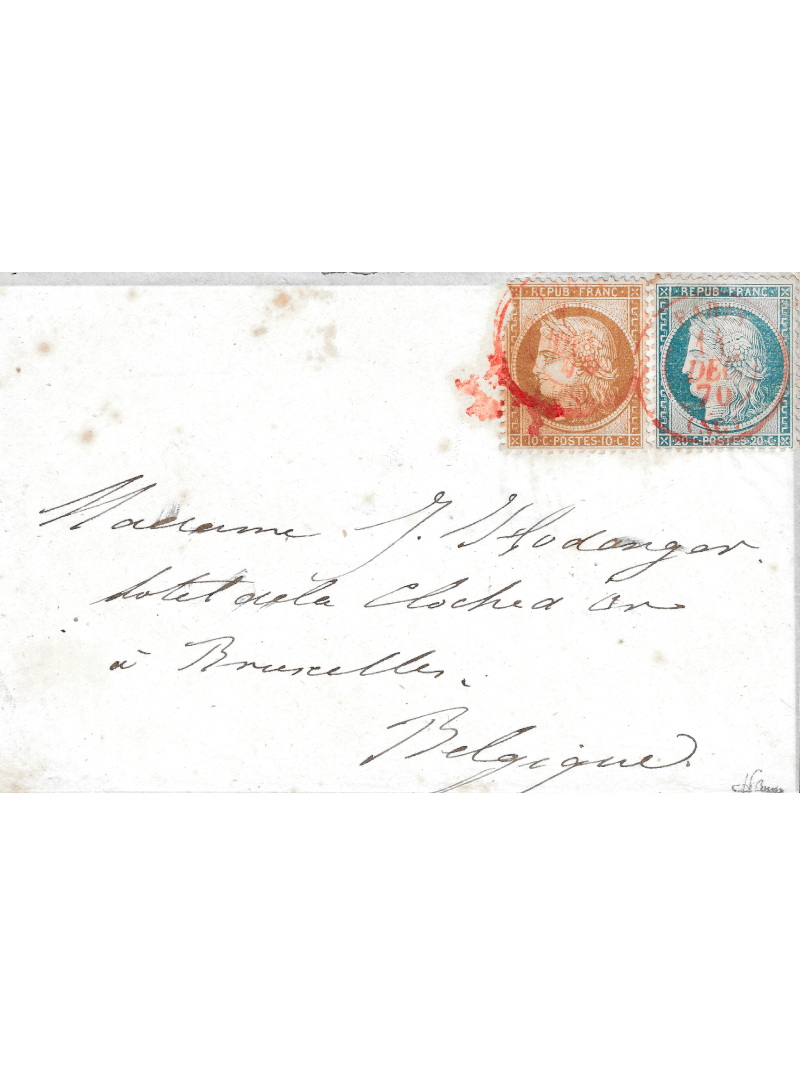 REPUB·FRANC
REPUB·FRANC
10·C·POSTES·10·C
20·C·POSTES·20·C
DEC
70
Madame J.
hotel de la Cloche d or
à Bruxelles.
Belgique.